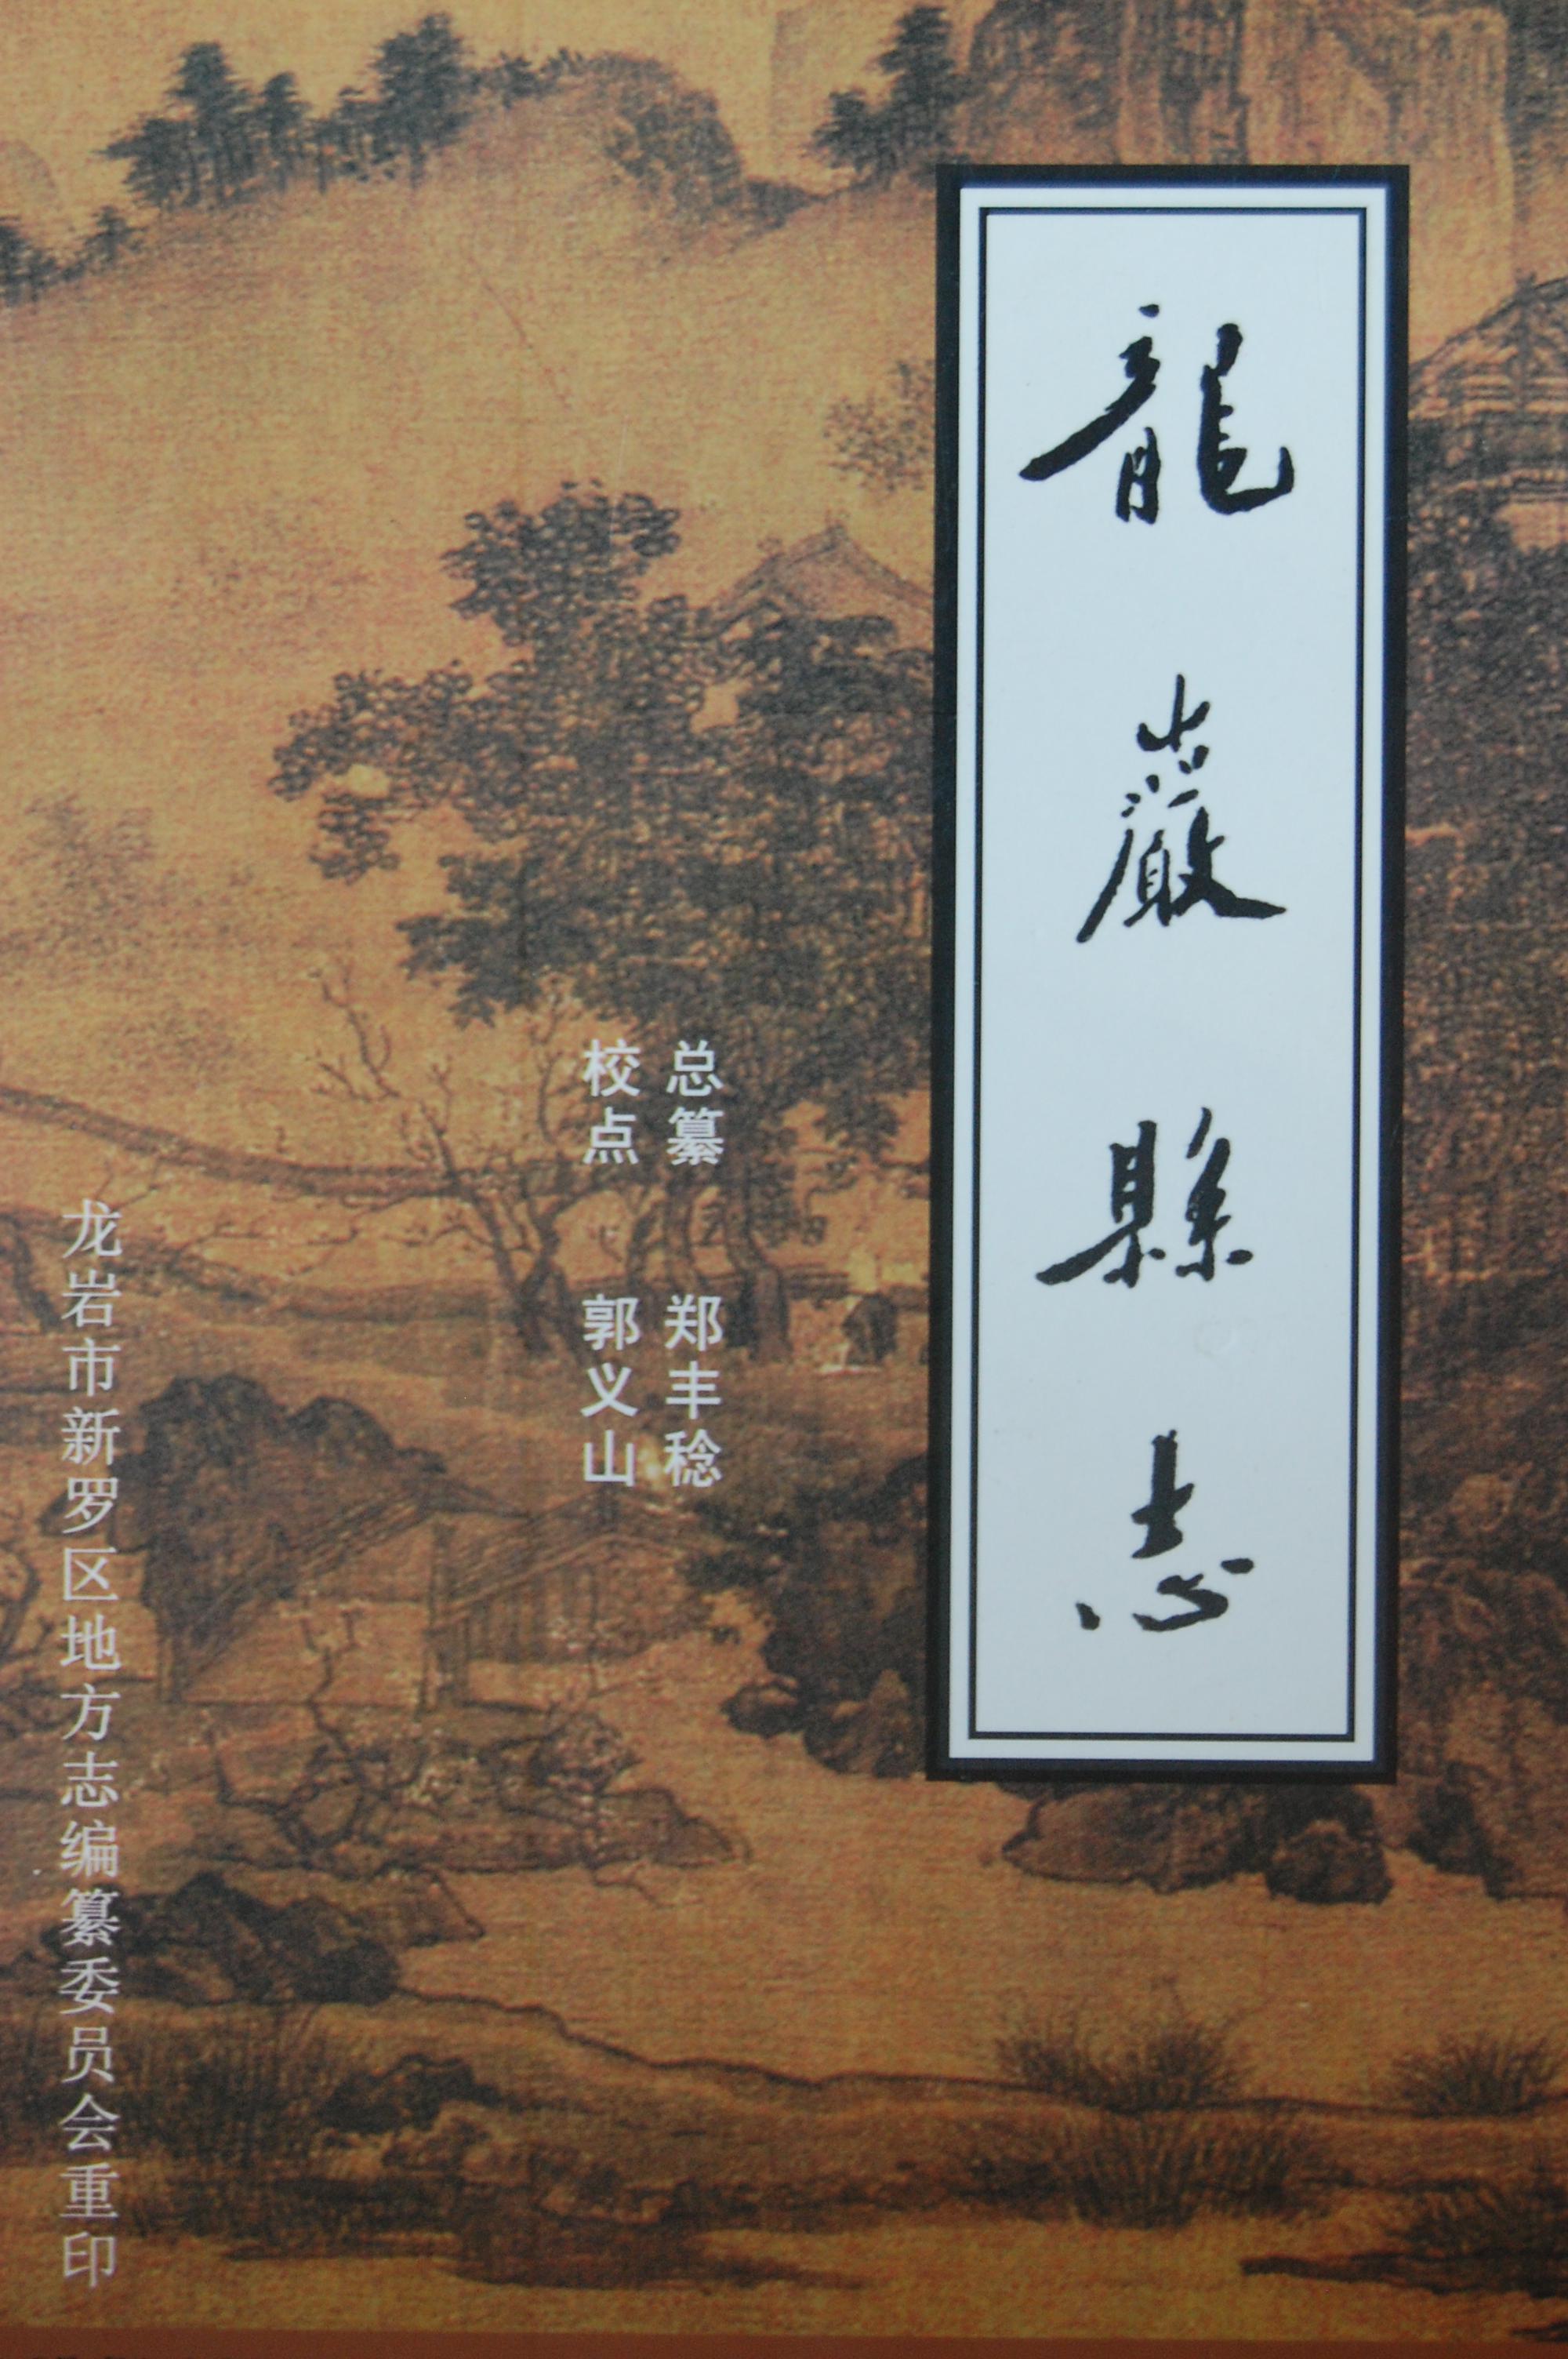 龍巖縣志
总纂 郑丰稔
校点 郭义山
龙岩市新罗区地方志编纂委员会重印